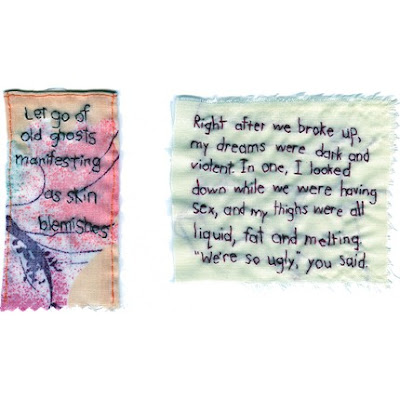 Let go of
old ghosts
manifesting
as skin
blemishes
Right after we broke up,
my dreams were dark and
violent. In one, I looked
down while we were having
sex, and my thighs were all
liquid, fat and melting.
"We're so ugly," you said.